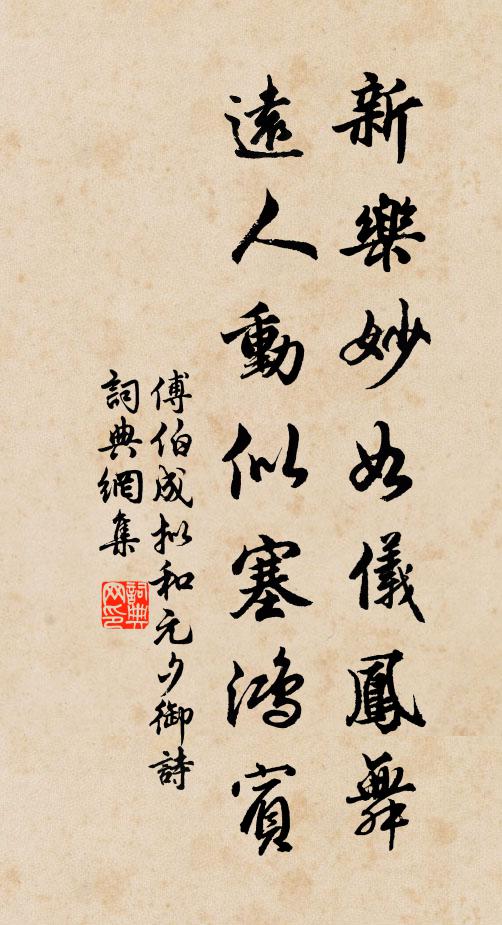 新樂妙如儀鳳舞
遠人動似塞鴻賓
傅伯成拟和元夕御詩
詞典網集
詞典网印